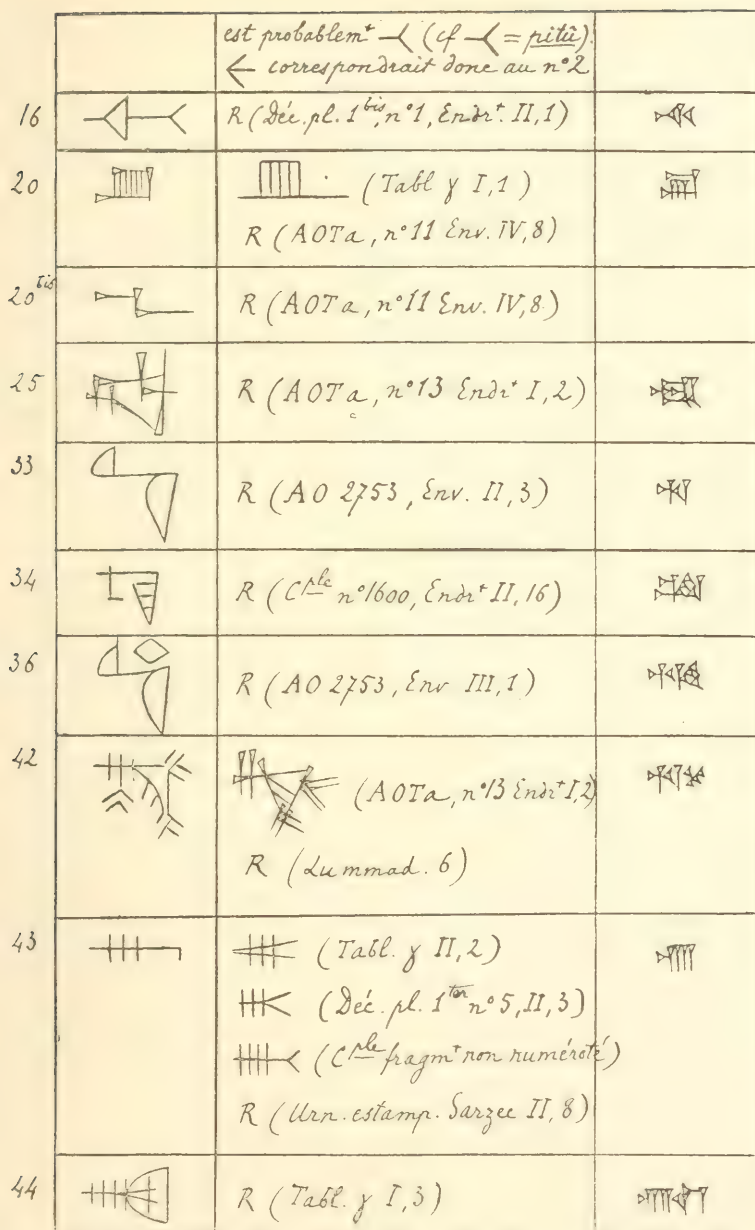 est probablem^t (cf = pitû).
correspondrait donc au n°2
16 R (Déc. pl. 1^bis, n°1, Endr^t. II, 1)
20 (Tabl γ I, 1)
R (AOTa, n°11 Env. IV, 8)
20^bis R (AOTa, n°11 Env. IV, 8)
25 R (AOTa, n°13 Endr^t I, 2)
33 R (AO 2753, Env. II, 3)
34 R (C^ple n°1600, Endr^t II, 16)
36 R (AO 2753, Env III, 1)
42 (AOTa, n°13 Endr^t I, 2)
R (Lummad. 6)
43 (Tabl. γ II, 2)
(Déc. pl. 1^ter n°5, II, 3)
(C^ple fragm^t non numéroté)
R (Urn. estamp. Sarzec II, 8)
44 R (Tabl. γ I, 3)